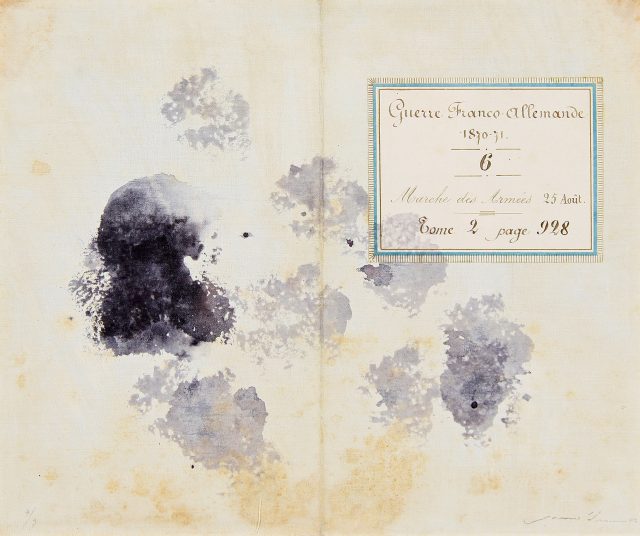 Guerre Franco-Allemande
1870-71.
6
Marche des Armées 25 Août.
Tome 2 page 928